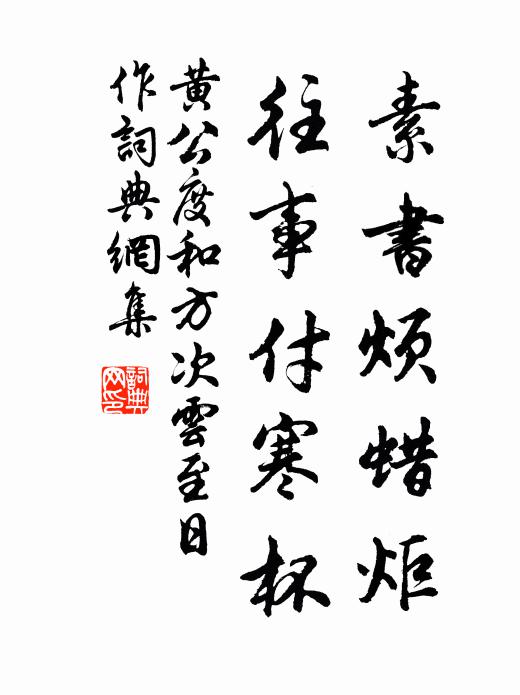 素書煩蜡炬
往事付寒杯
黄公度和方次雲至日
作詞典網集
詞典网印